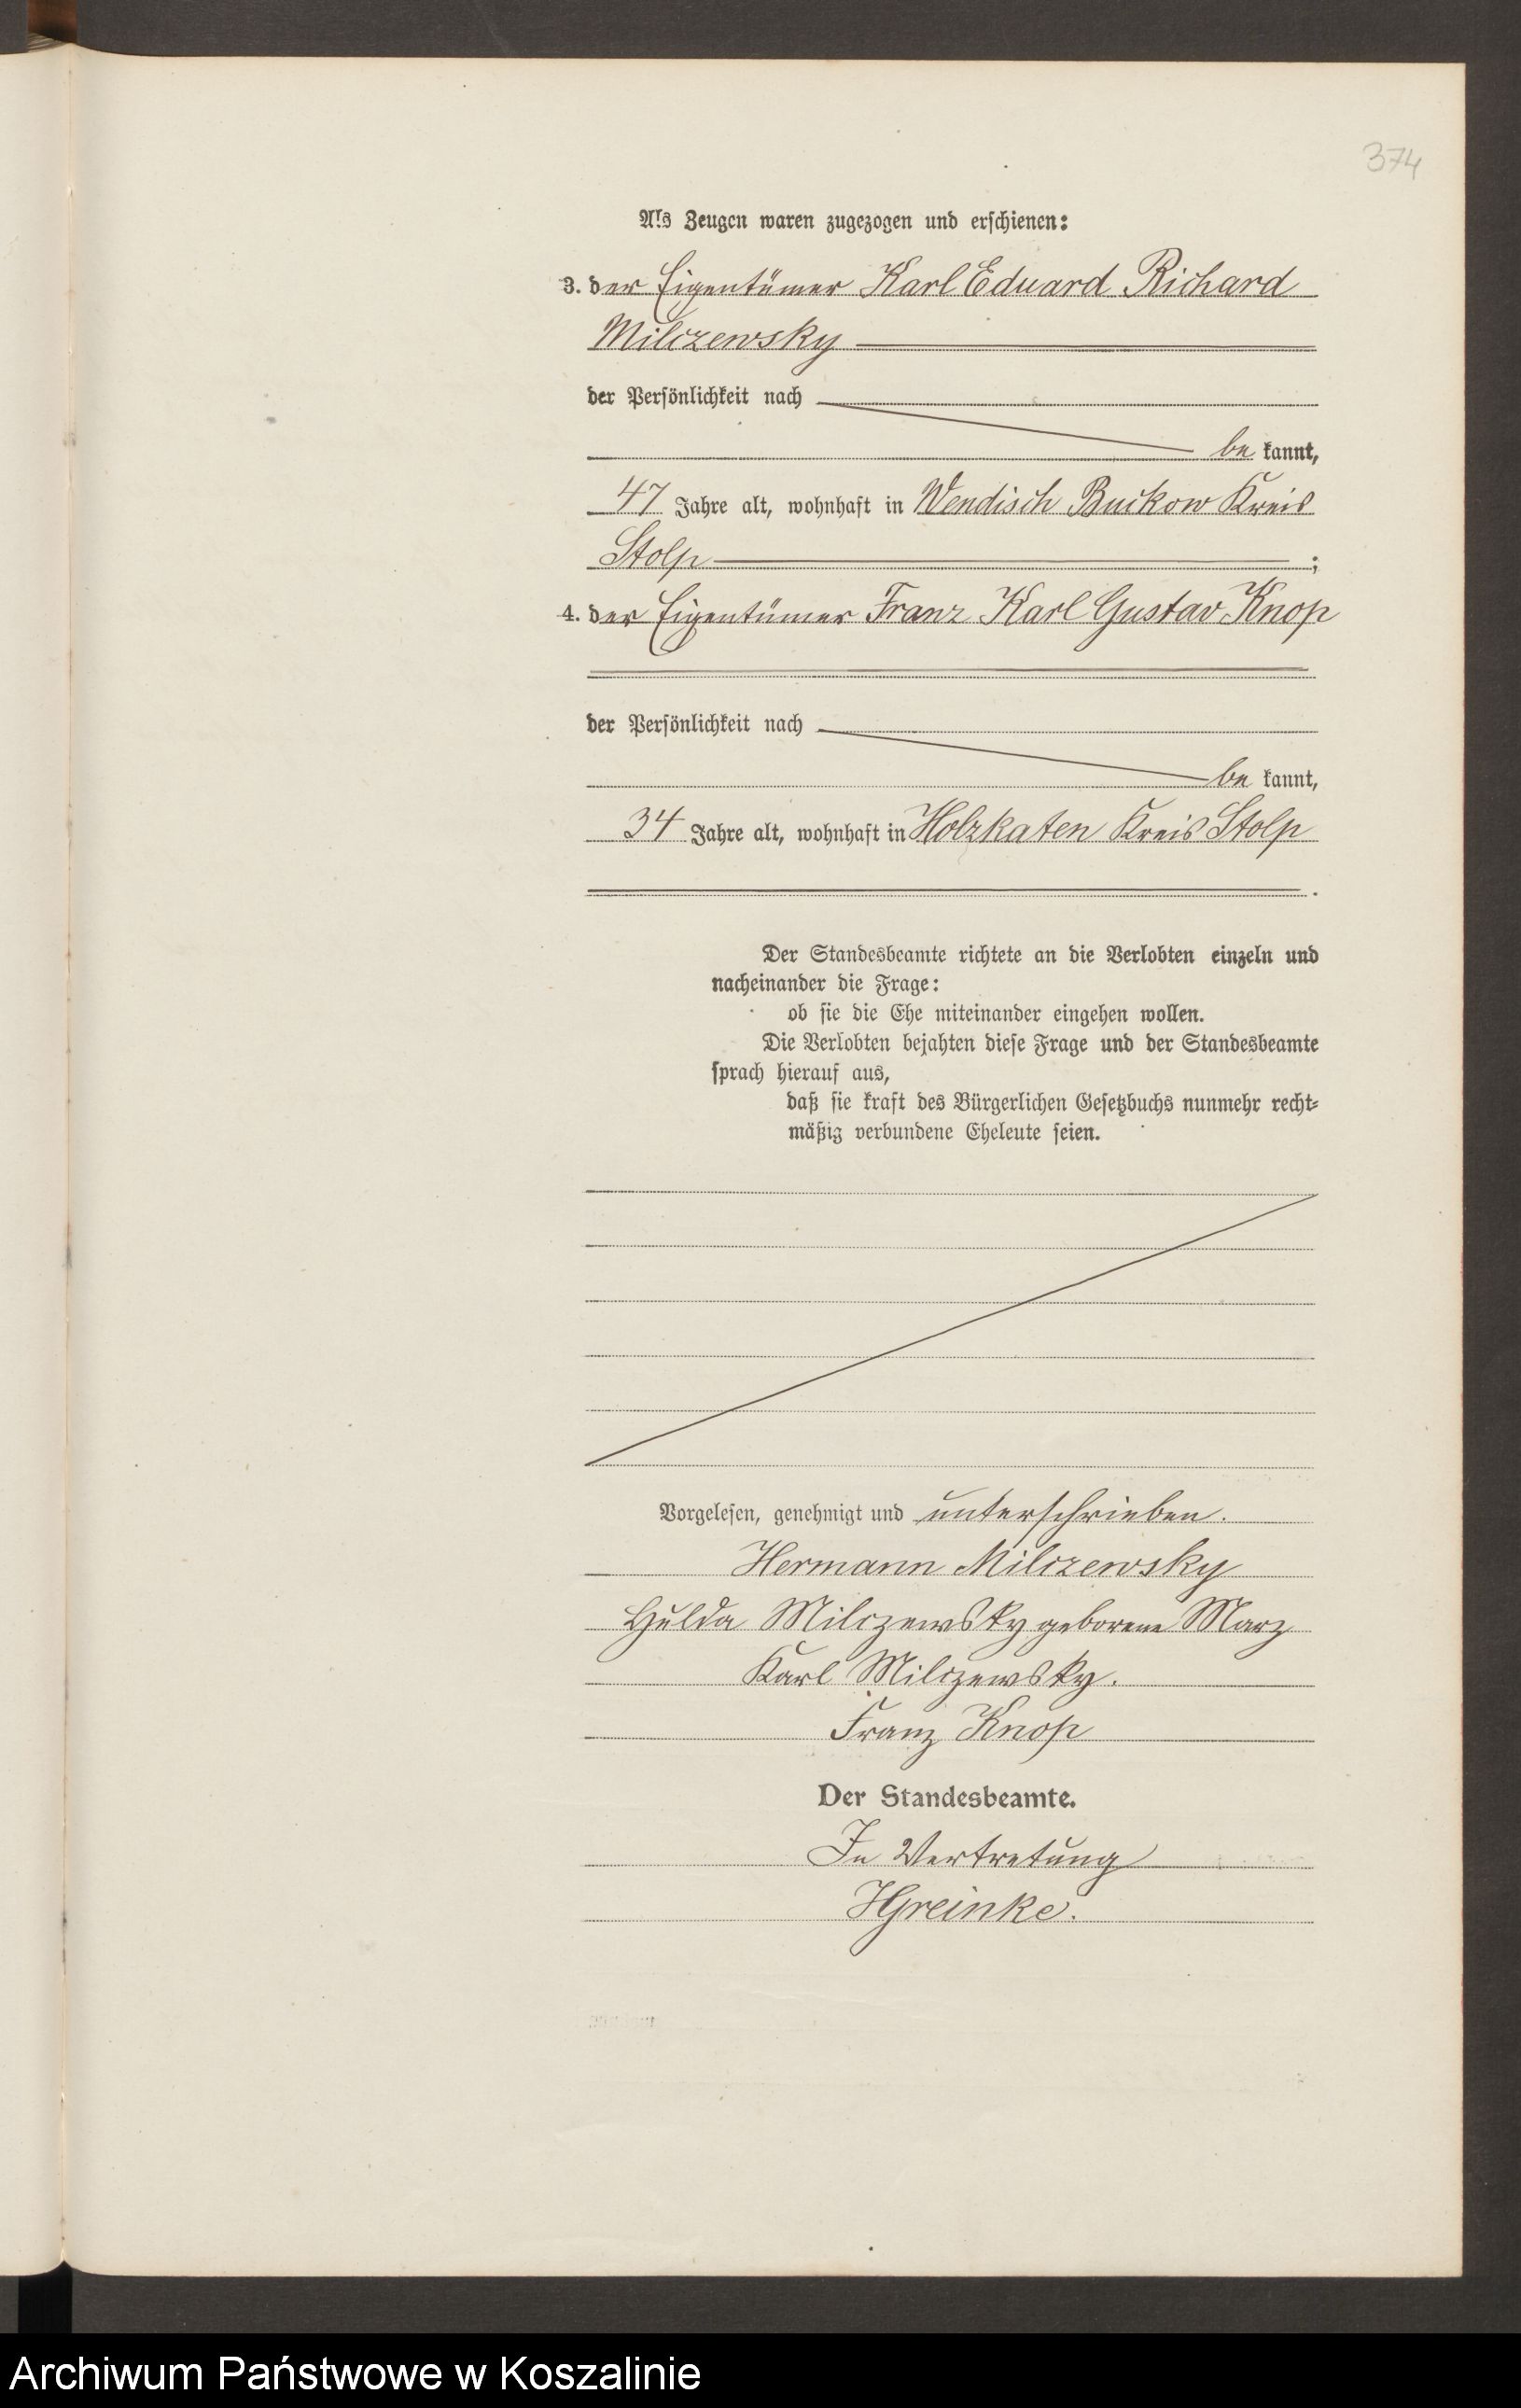 374
Als Zeugen waren zugezogen und erschienen:
3. der Eigentümer Karl Eduard Richard
Milczewsky
der Persönlichkeit nach
be kannt,
47 Jahre alt, wohnhaft in Wendisch Buckow Kreis
Stolp ;
4. der Eigentümer Franz Karl Gustav Knop
der Persönlichkeit nach
be kannt,
34 Jahre alt, wohnhaft in Holzkaten Kreis Stolp
.
Der Standesbeamte richtete an die Verlobten einzeln und
nacheinander die Frage:
ob sie die Ehe miteinander eingehen wollen.
Die Verlobten bejahten diese Frage und der Standesbeamte
sprach hierauf aus,
daß sie kraft des Bürgerlichen Gesetzbuchs nunmehr recht-
mäßig verbundene Eheleute seien.
Vorgelesen, genehmigt und unterschrieben.
Hermann Milczewsky
Hulda Milczewsky geborene Marz
Karl Milczewsky.
Franz Knop
Der Standesbeamte.
In Vertretung
HGreinke.
Archiwum Państwowe w Koszalinie